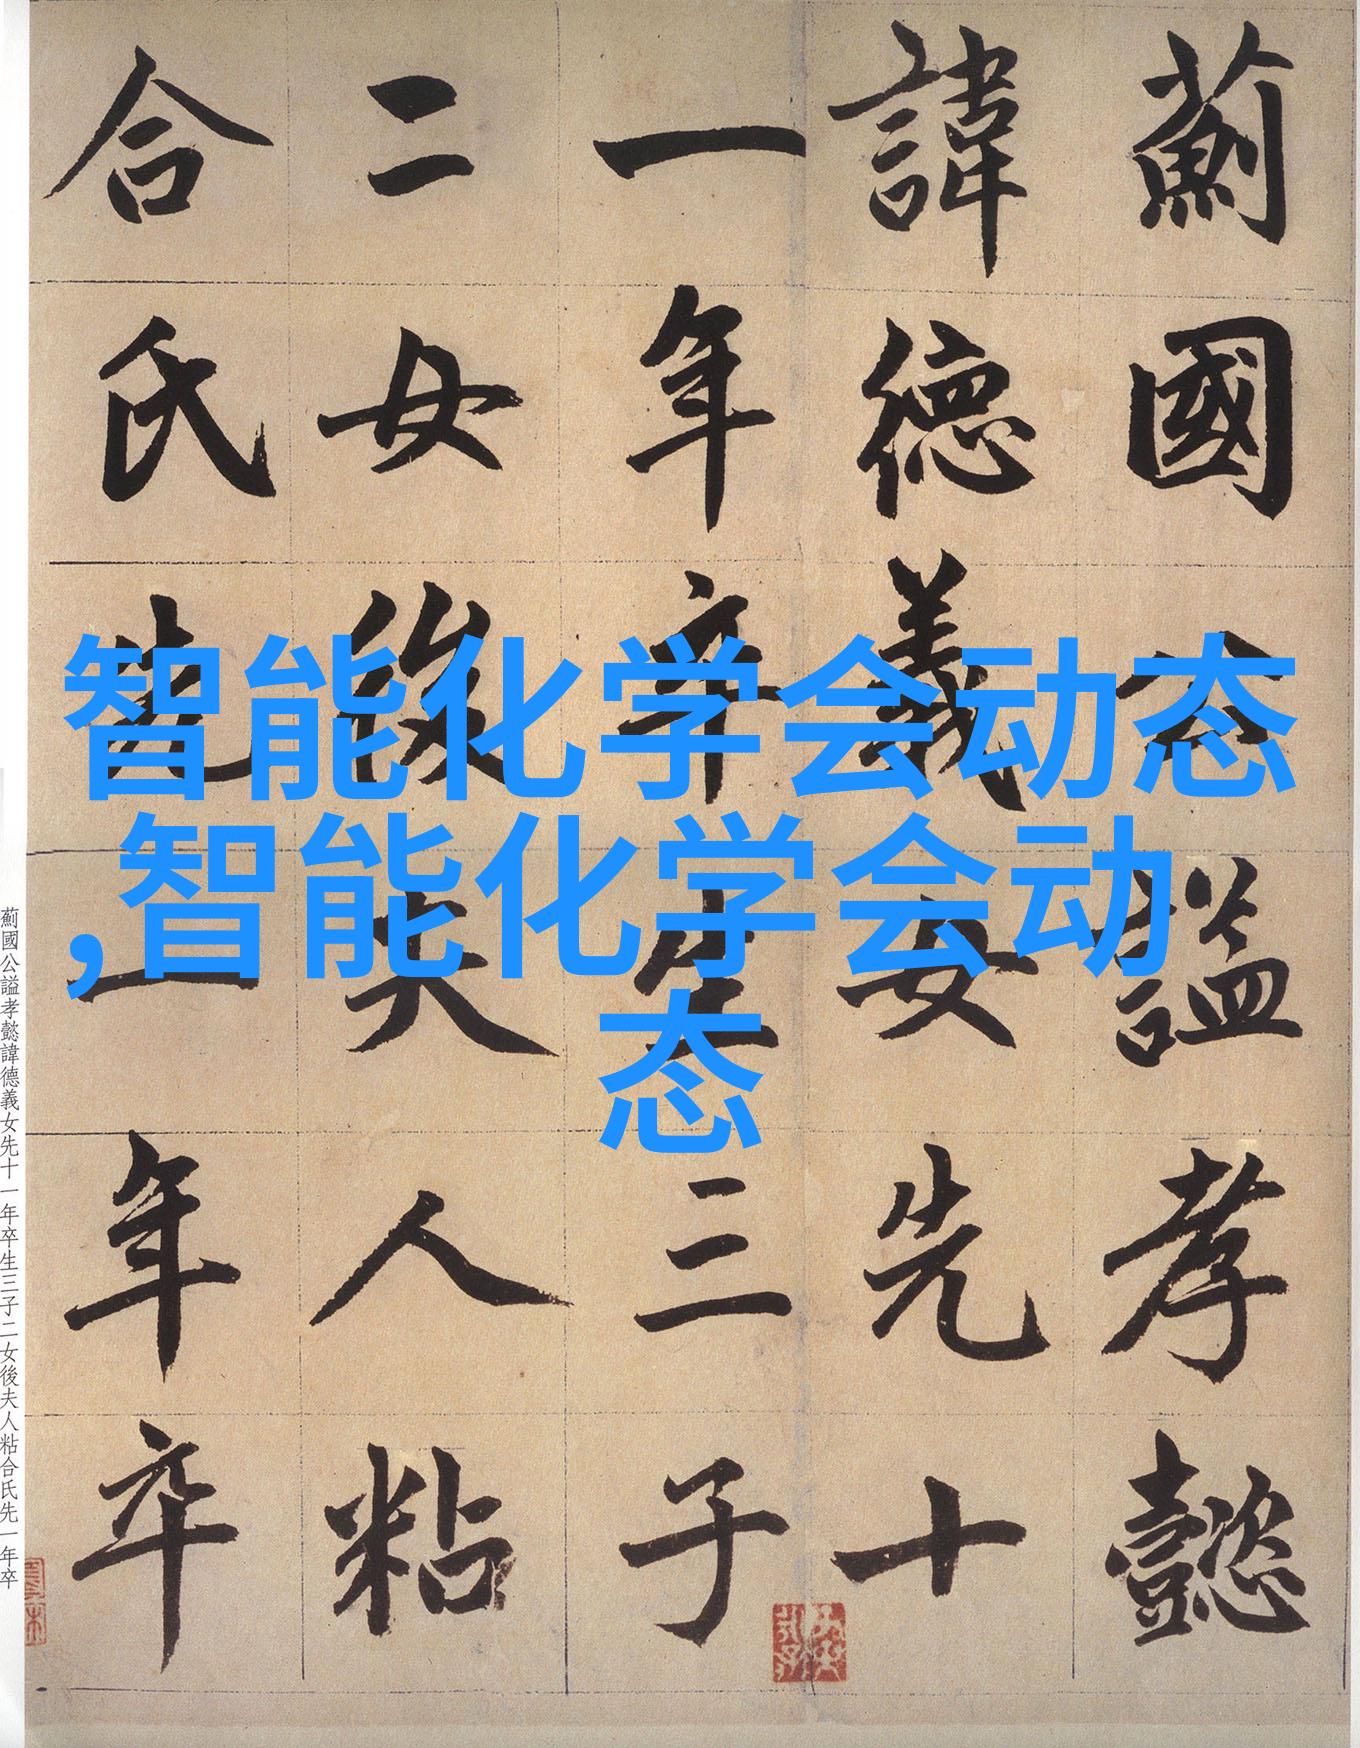 薊國公謚孝懿
諱德義女先十
一年卒生三子
二女後夫人粘
合氏先一年卒
智能化学会动态
,智能化学会动
态
薊國公謚孝懿諱德義女先十一年卒生三子二女後夫人粘合氏先一年卒